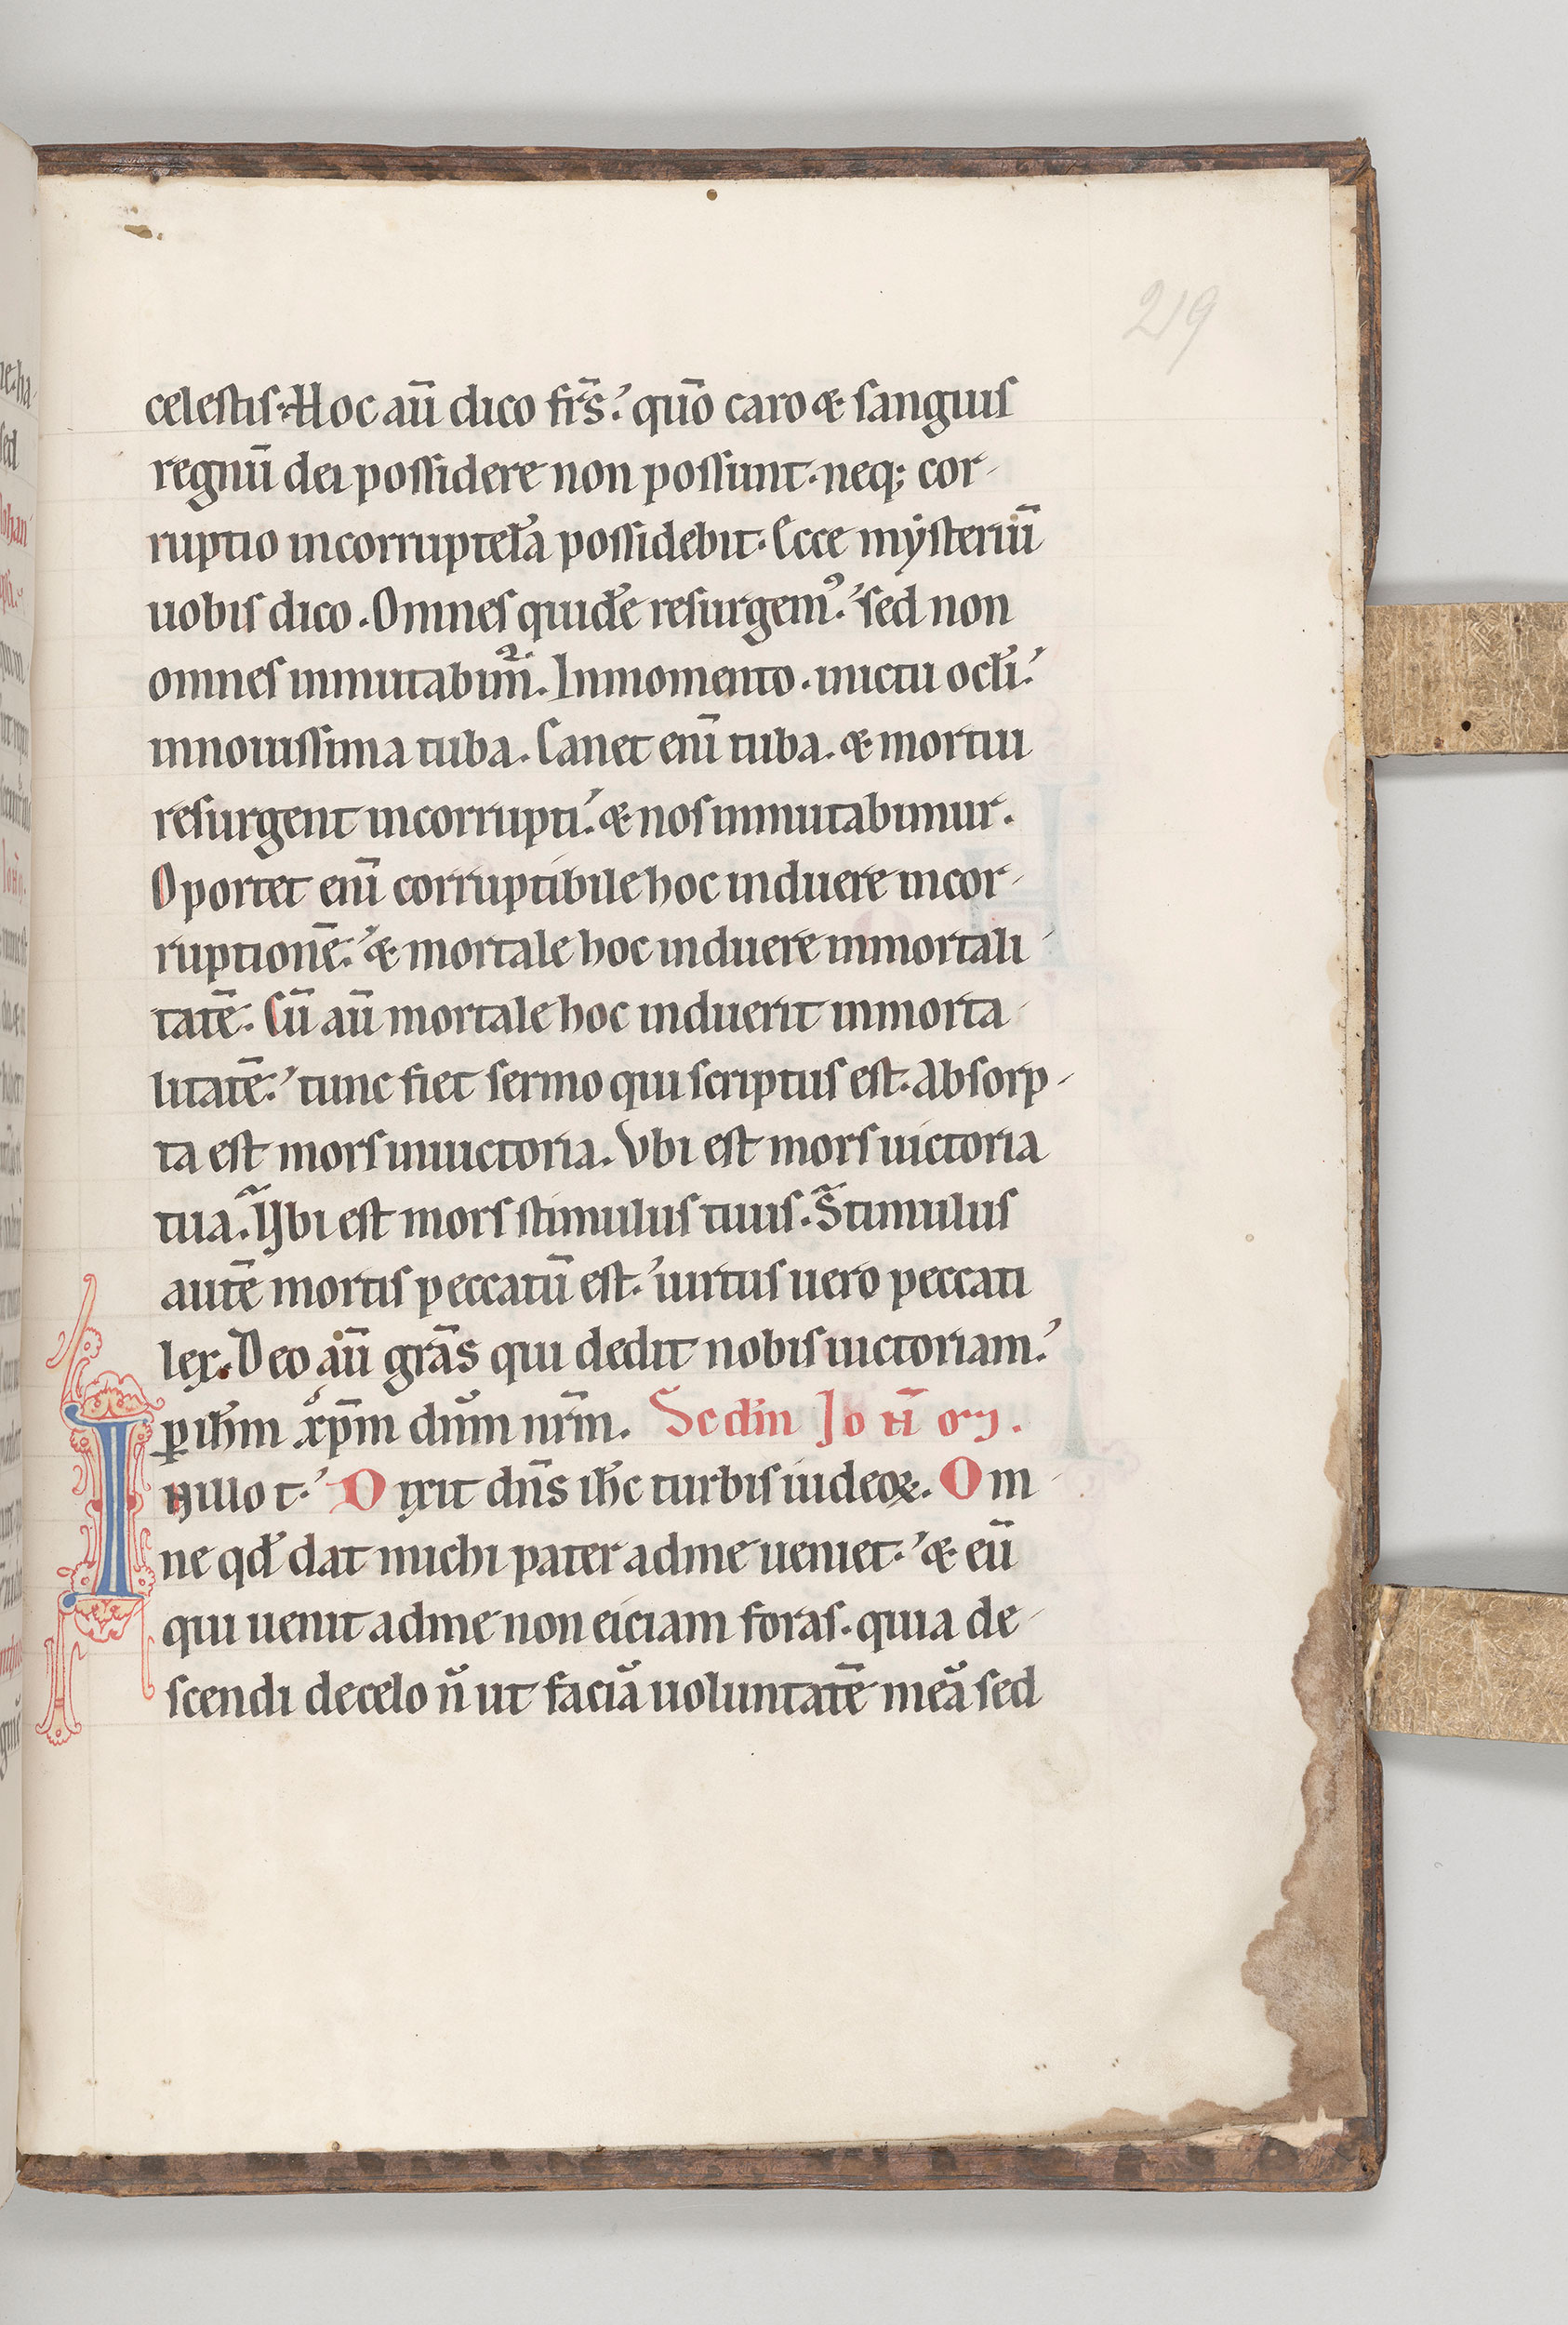 219
celestis. Hoc aū dico frs̄. quō caro & sanguis
regnū dei possidere non possunt. neq; cor-
ruptio incorruptel̄a possidebit. Ecce mẏsteriū
uobis dico. Omnes quidē resurgemꝰ. sed non
omnes inmutabim̄. In momento. in ictu ocl̄i.
in nouissima tuba. Canet enī tuba. & mortui
resurgent incorrupti. & nos inmutabimur.
Oportet enī corruptibile hoc induere incor-
ruptionē. & mortale hoc induere inmortali-
tatē. Cū aū mortale hoc induerit inmorta-
litatē. tunc fiet sermo qui scriptus est. Absorp-
ta est mors in uictoria. Vbi est mors uictoria
tua. Vbi est mors stimulus tuus. Stimulus
autē mortis peccatū est. uirtus uero peccati
lex. Deo aū grās qui dedit nobis uictoriam.
ꝑ ih̄m xp̄m dūm nr̄m. Scdm̄
In illo t. Dixit dn̄s ih̄c turbis iudeoꝝ. Om-
ne qd̄ dat michi pater ad me ueniet. & eū
qui uenit ad me non eiciam foras. quia de-
scendi de celo n̄ ut faciā uoluntatē meā sed